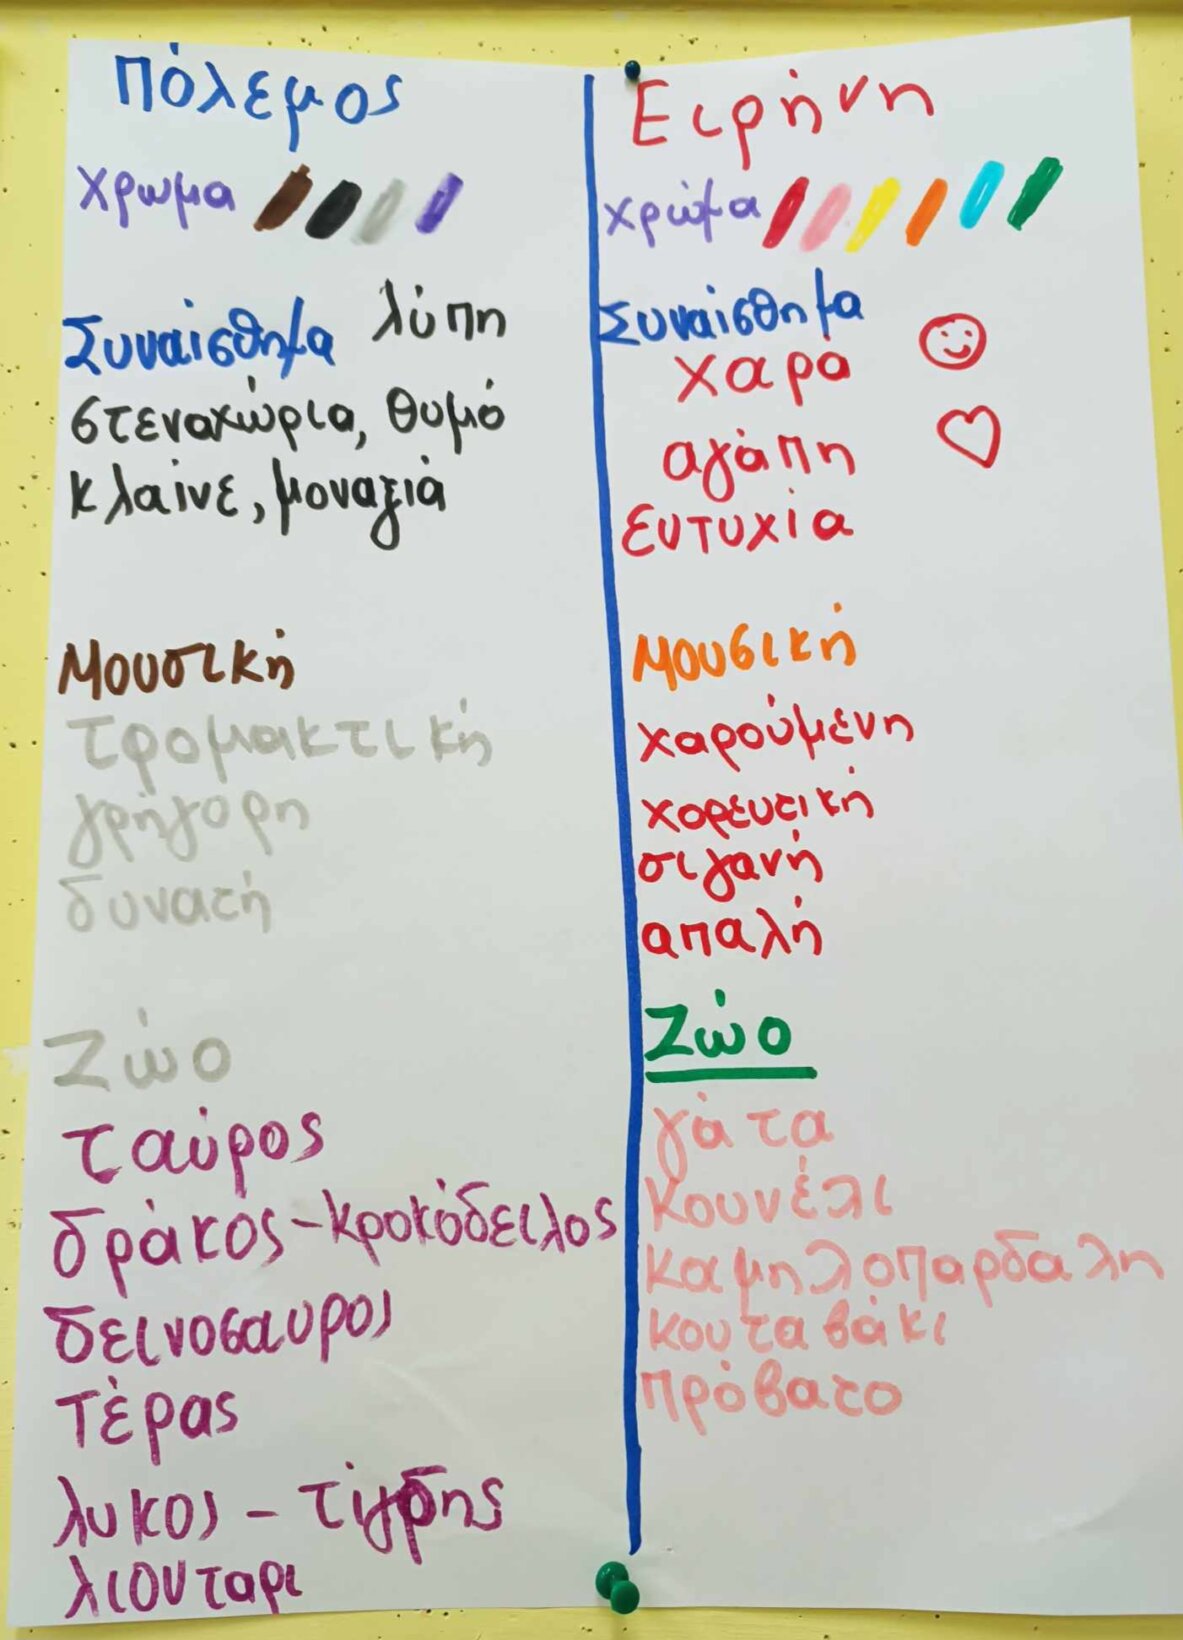 Πόλεμος
Χρωμα
Συναίσθημα λύπη
στεναχώρια, θυμό
κλαίνε, μοναξιά
Μουσική
τρομακτική
γρήγορη
δυνατή
Ζώο
ταύρος
δράκος - κροκόδειλος
δεινοσαυρος
τέρας
λυκος - τίγρης
λιονταρι
Ειρήνη
χρώμα
Συναίσθημα
χαρά
αγάπη
ευτυχία
Μουσική
χαρούμενη
χορευτική
σιγανή
απαλή
Ζώο
γάτα
κουνέλι
καμηλοπαρδαλη
κουταβάκι
πρόβατο